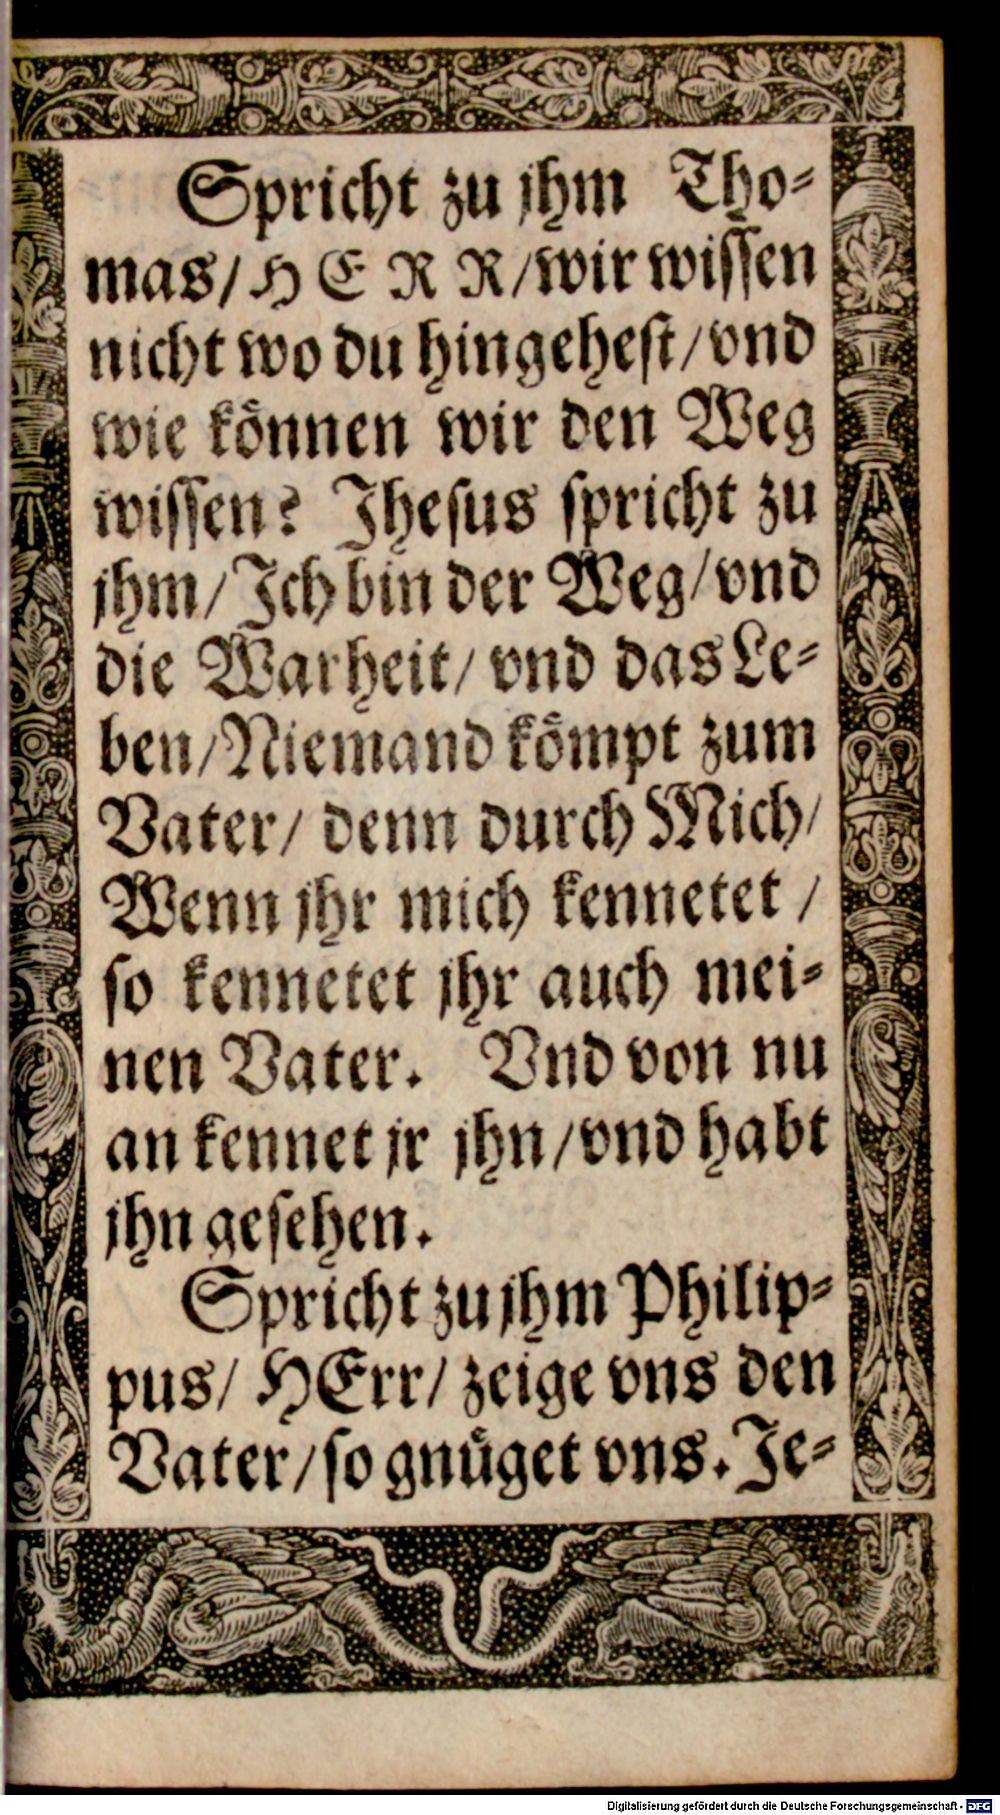 Spricht zu jhm Tho⸗
mas/ H E R R/ wir wissen
nicht wo du hingehest/ vnd
wie koͤnnen wir den Weg
wissen? Jhesus spricht zu
jhm/ Ich bin der Weg/ vnd
die Warheit/ vnd das Le⸗
ben/ Niemand koͤmpt zum
Vater/ denn durch Mich/
Wenn jhr mich kennetet/
so kennetet jhr auch mei⸗
nen Vater. Vnd von nu
an kennet jr jhn/ vnd habt
jhn gesehen.
Spricht zu jhm Philip⸗
pus/ HErr/ zeige vns den
Vater/ so gnuͤget vns. Je⸗
Digitalisierung gefördert durch die Deutsche Forschungsgemeinschaft - DFG